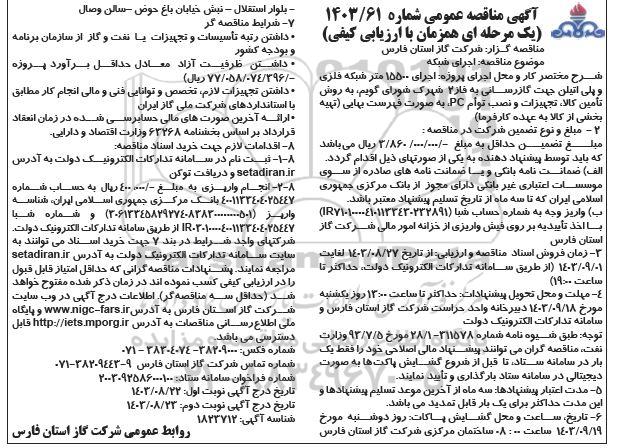 آگهی مناقصه عمومی شماره ۱۴۰۳/۶۱
(یک مرحله ای همزمان با ارزیابی کیفی)
مناقصه گـزار: شرکت گاز استان فارس
موضوع مناقصه: اجرای شبکه
شـرح مختصر کار و محل اجرای پروژه: اجرای ۱۵۵۰۰ متر شبکه فلزی
و پلی اتیلن جهت گازرسـانی به فاز۲ شهرک شورای گویم، به روش
تأمین کالا، تجهیزات و نصب توأم PC، به صورت فهرست بهایی (تهیه
بخشی از کالا به عهده کارفرما)
۲ - مبلغ و نوع تضمین شرکت در مناقصه :
مبلـغ تضمیـن حداقل به مبلغ -/۳/۸۶۰/۰۰۰/۰۰۰ ریال می‌باشد
که باید توسط پیشنهاد دهنده به یکی از صورتهای ذیل اقدام گردد.
الف) ضمانت نامه بانکی و یـا ضمانت نامه های صادره از سـوی
موسسـات اعتباری غیر بانکی دارای مجوز از بانک مرکزی جمهوری
اسلامی ایران که تا سه ماه از تاریخ تسلیم پیشنهاد معتبر باشد.
ب) واریز وجه به شماره حساب شبا
با اخذ تأییدیه بر روی فیش واریزی از خزانه امور مالی شـرکت گاز
استان فارس
۳- زمان فروش اسناد مناقصه و ارزیابی: از تاریخ ۱۴۰۳/۰۸/۲۷ لغایت
۱۴۰۳/۰۹/۱ (از طریق سـامانه تدارکات الکترونیک دولت، حداکثر تا
ساعت ۱۹:۰۰)
۴- مهلت و محل تحویل پیشنهادات: حداکثر تا ساعت ۱۳:۰۰ روز یکشنبه
مورخ ۱۴۰۳/۰۹/۱۸ دبیرخانه واحد حراست شرکت گاز استان فارس و
سامانه تدارکات الکترونیک دولت
توجه: طبق شـیوه نامه شماره ۳۱۱۵۷۸-۲۸/۱ مورخ ۹۳/۷/۵ وزارت
نفت، مناقصه گران می توانند پیشـنهاد مالی اصلاحی خود را فقط یک
بار در سامانه ستاد، تا قبل از شروع گشایش پاکت‌ها به صورت
دیجیتالی در سامانه ستاد بارگذاری و تأیید نمایند.
۵- مدت اعتبار پیشنهادها: سه ماه از آخرین موعد تسلیم پیشنهادها و
این مدت حداکثر برای یک بار قابل تمدید می باشد.
۶- تاریخ، سـاعت و محل گشـایش پـاکات: روز دوشـنبه مورخ
۱۴۰۳/۰۹/۱۹ ساعت ۰۸:۰۰ ساختمان مرکزی شرکت گاز استان فارس
- بلوار استقلال - نبش خیابان باغ حوض -سالن وصال
۷- شرایط مناقصه گر
•داشتن رتبه تأسیسات و تجهیزات یـا نفت و گاز از سازمان برنامه
و بودجه کشور
•داشتن ظرفیت آزاد معـادل حداقـل بـرآورد پـروژه
(-/۷۷/۰۵۸/۰۷۴/۳۹۶ ریال)
•داشتن تجهیزات لازم، تخصص و توانایی فنی و مالی انجام کار مطابق
با استانداردهای شرکت ملی گاز ایران
•ارائـه آخرین صورت های مالی حسابرسـی شـده در زمان انعقاد
قرارداد بر اساس بخشنامه ۶۳۲۶۸ وزارت اقتصاد و دارایی.
۸- اقدامات لازم جهت خرید اسناد مناقصه:
۸-۱- ثبـت نام در سـامانه تدارکات الکترونیـک دولت به آدرس
setadiran.ir و دریافت توکن
۸-۲- انجـام واریـزی به مبلـغ -/۴۰۰.۰۰۰ ریال به حسـاب شـماره
بانک مرکـزی جمهوری اسلامی ایران، شناسـه
واریـز و شـماره شـبا
از طریق سامانه تدارکات الکترونیک دولت.
شرکتهای واجد شـرایط در بند ۷ جهت خرید اسـناد می توانند به
سایت سـامانه تدارکات الکترونیک دولت به آدرس setadiran.ir
مراجعه نمایند. پیشـنهادات مناقصه‌گرانی که حداقل امتیاز قابل قبول
را در ارزیابی کیفی کسب نموده اند در زمان ذکر شده مفتوح خواهد
شـد (حداقل سـه مناقصه‌گر). اطلاعات درج آگهی در وب سـایت
شـرکت گاز اسـتان فارس به آدرسwww.nigc-fars.ir و پایگاه
ملی اطلاع‌رسـانی مناقصات به آدرس http://iets.mporg.ir قابل
دسترسی می باشد.
شماره فکس: ۳۸۲۰۹۰۰۰-۳۸۳۰۴۰۷۴-۰۷۱
شـماره تماس شرکت گاز استان فارس ۹-۳۸۲۰۹۴۴۳-۰۷۱
شماره فراخوان سامانه ستاد: ۲۰۰۳۰۹۲۵۸۶۰۰۰۱۰۰
تاریخ درج آگهی نوبت اول: ۱۴۰۳/۰۸/۲۲
تاریخ درج آگهی نوبت دوم: ۱۴۰۳/۰۸/۲۳
شناسه آگهی: ۱۸۲۳۷۱۲
روابط عمومی شرکت گاز استان فارس